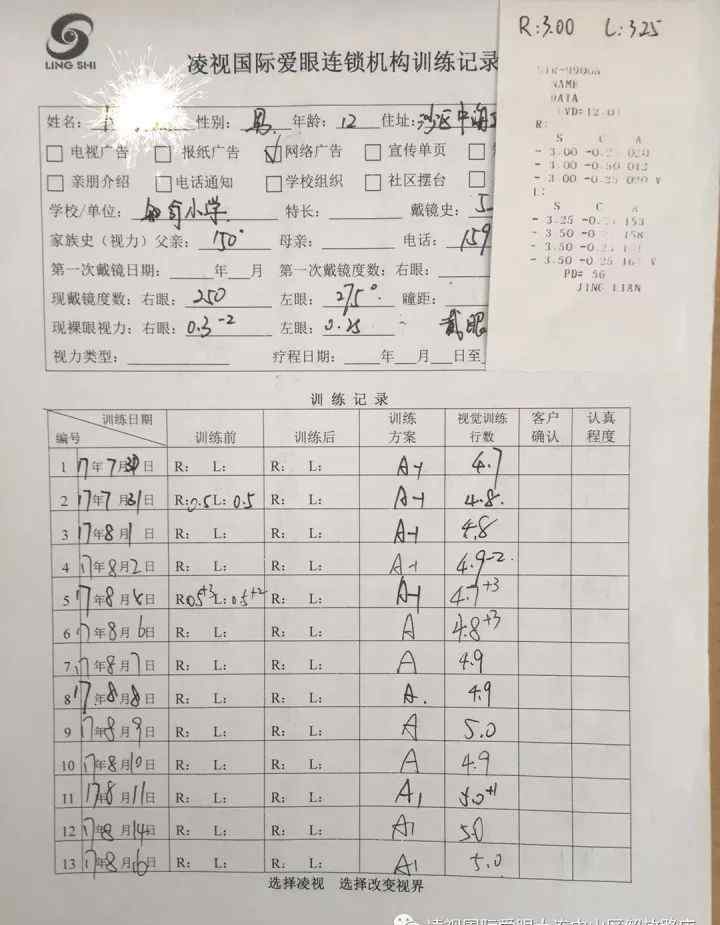 R:3.00 L:3.25
LING SHI
凌视国际爱眼连锁机构训练记录
NAME
DATA
(VD=12.0)
R:
S C A
- 3.00 -0.25 020
- 3.00 -0.50 012
- 3.00 -0.25 020
L:
S C A
- 3.25 153
- 3.50 158
- 3.50
- 3.50 -0.25
PD= 56
JING LIAN
姓名: 性别: 男 年龄: 12 住址:
电视广告 报纸广告 网络广告 宣传单页
亲朋介绍 电话通知 学校组织 社区摆台
学校/单位: 小学 特长: 戴镜史:
家族史(视力)父亲: 150° 母亲: 电话: 159
第一次戴镜日期: 年 月 第一次戴镜度数: 右眼:
现戴镜度数: 右眼: 250 左眼: 275° 瞳距:
现裸眼视力: 右眼: 0.3-2 左眼: 0.25 戴眼
视力类型: 疗程日期: 年 月 日至
训 练 记 录
编号 训练日期 训练前 训练后 训练方案 视觉训练行数 客户确认 认真程度
1 17年7月30日 R: L: R: L: A-1 4.7
2 17年7月31日 R:0.5 L:0.5 R: L: A-1 4.8.
3 17年8月1日 R: L: R: L: A-1 4.8
4 17年8月2日 R: L: R: L: A-1 4.9-2
5 17年8月 日 R:0.5+3 L:0.5+2 R: L: A-1 4.7+3
6 17年8月6日 R: L: R: L: A 4.8+3
7 17年8月7日 R: L: R: L: A 4.9
8 17年8月8日 R: L: R: L: A. 4.9
9 17年8月9日 R: L: R: L: A 5.0
10 17年8月10日 R: L: R: L: A 4.9
11 17年8月11日 R: L: R: L: A1 5.0+1
12 17年8月14日 R: L: R: L: A1 5.0
13 17年8月16日 R: L: R: L: A1 5.0
选择凌视 选择改变视界